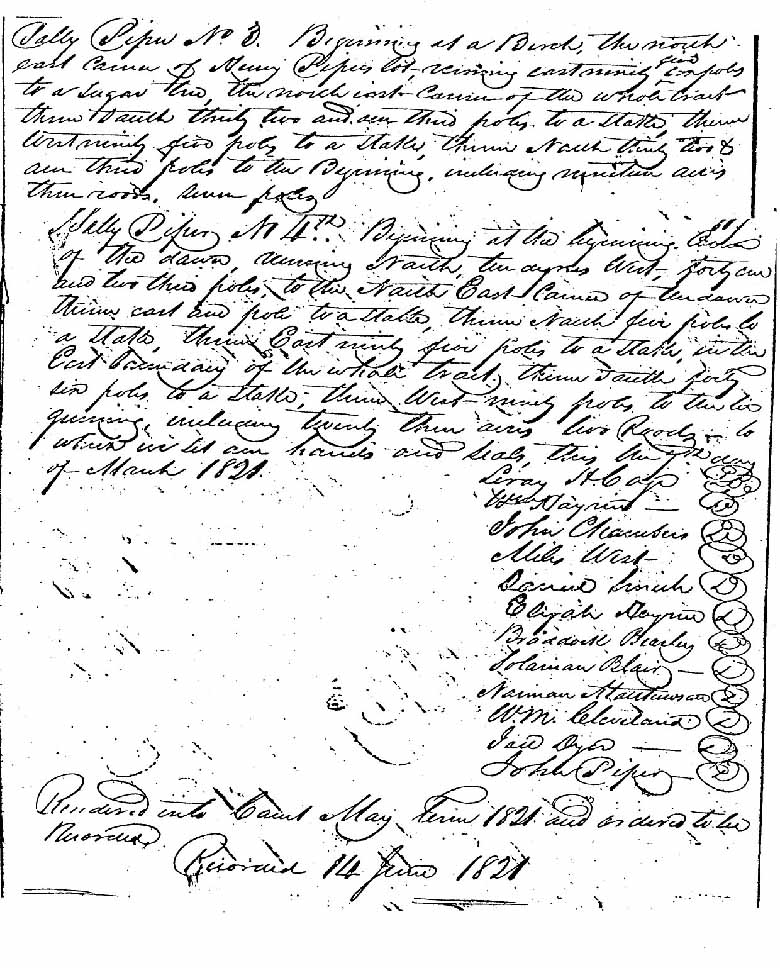 Sally Piper No 3. Beginning at a Birch, the north
east Corner of Henry Pipers lot, running east ninety five poles
to a Sugar tree, the north east Corner of the whole tract
thence South thirty two and one third poles to a Stake, thence
West ninety five poles to a Stake, thence North thirty two &
one third poles to the Beginning, including nineteen acres
three roods, seven poles
Sally Piper, No 4th. Beginning at the beginning
of the dower, running North, ten degrees West, forty one
and two third poles, to the North East Corner of the dower
thence east one pole to a stake, thence North five poles to
a stake, thence East ninety five poles to a stake, in the
East boundary of the whole tract, thence South forty
six poles to a Stake, thence West ninety poles, to the be
ginning, including twenty three acres two Roods to
which we set our hands and seals, this the 7th day
of March 1821.
Leroy H Cage
Wm
John Chambers
Miles West
Daniel Smith
Elijah
Braddock Bearley
Solaman Blair
Norman Matthewson
Wm. Cleveland
Dyer
John Piper
Rendered into Court May Term 1821 and ordered to be
Recorded
Recorded 14 June 1821